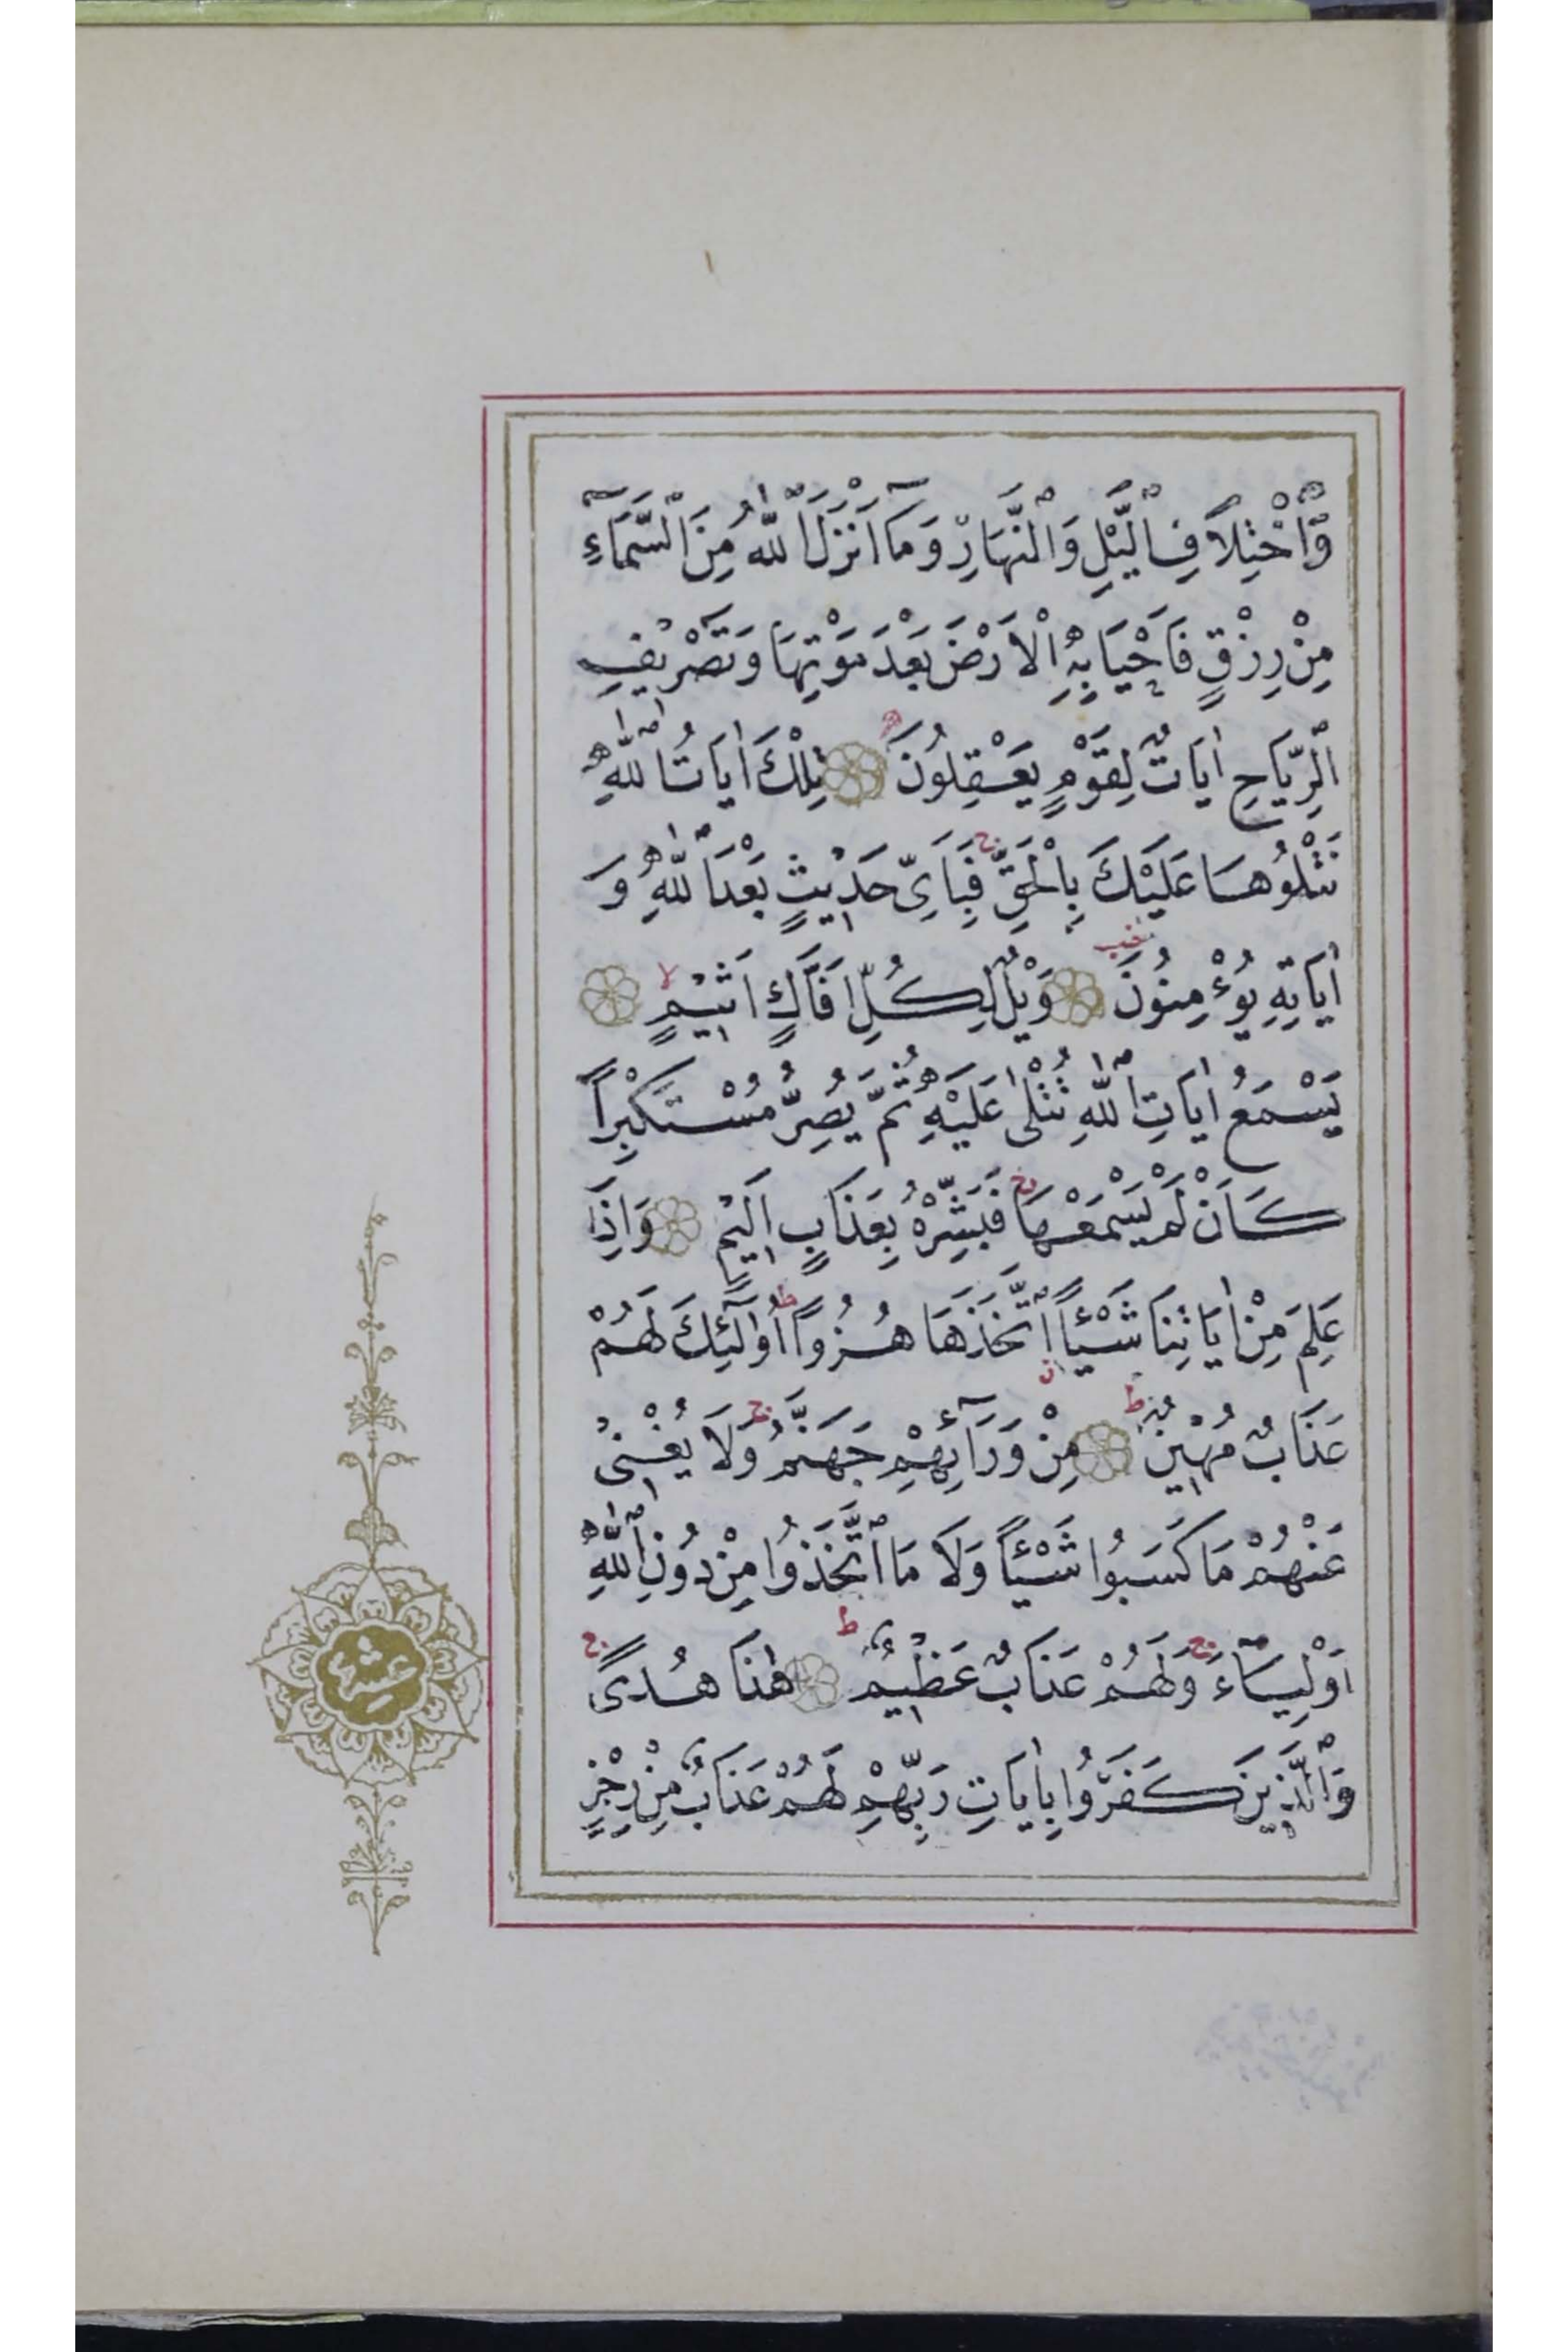 وَٱخْتِلَافِ ٱلَّيْلِ وَٱلنَّهَارِ وَمَآ اَنْزَلَ ٱللّٰهُ مِنَ ٱلسَّمَآءِ
مِنْ رِزْقٍ فَاَحْيَا بِهِ ٱلْاَرْضَ بَعْدَ مَوْتِهَا وَتَصْرِيفِ
ٱلرِّيَاحِ اٰيَاتٌ لِقَوْمٍ يَعْقِلُونَ تِلْكَ اٰيَاتُ ٱللّٰهِ
نَتْلُوهَا عَلَيْكَ بِٱلْحَقِّ ج فَبِاَىِّ حَدِيثٍ بَعْدَ ٱللّٰهِ وَ
اٰيَاتِهِ يُؤْمِنُونَ وَيْلٌ لِكُلِّ اَفَّاكٍ اَثِيمٍ لا
يَسْمَعُ اٰيَاتِ ٱللّٰهِ تُتْلٰى عَلَيْهِ ثُمَّ يُصِرُّ مُسْتَكْبِرًا
كَاَنْ لَمْ يَسْمَعْهَا ج فَبَشِّرْهُ بِعَذَابٍ اَلِيمٍ وَاِذَا
عَلِمَ مِنْ اٰيَاتِنَا شَيْـًٔا ٱتَّخَذَهَا هُزُوًا ط اُولٰٓئِكَ لَهُمْ
عَذَابٌ مُهِينٌ ط مِنْ وَرَآئِهِمْ جَهَنَّمُ ج وَلَا يُغْنِى
عَنْهُمْ مَا كَسَبُوا شَيْـًٔا وَلَا مَا ٱتَّخَذُوا مِنْ دُونِ ٱللّٰهِ
اَوْلِيَآءَ ج وَلَهُمْ عَذَابٌ عَظِيمٌ ط هٰذَا هُدًى ج
وَٱلَّذِينَ كَفَرُوا بِاٰيَاتِ رَبِّهِمْ لَهُمْ عَذَابٌ مِنْ رِجْزٍ